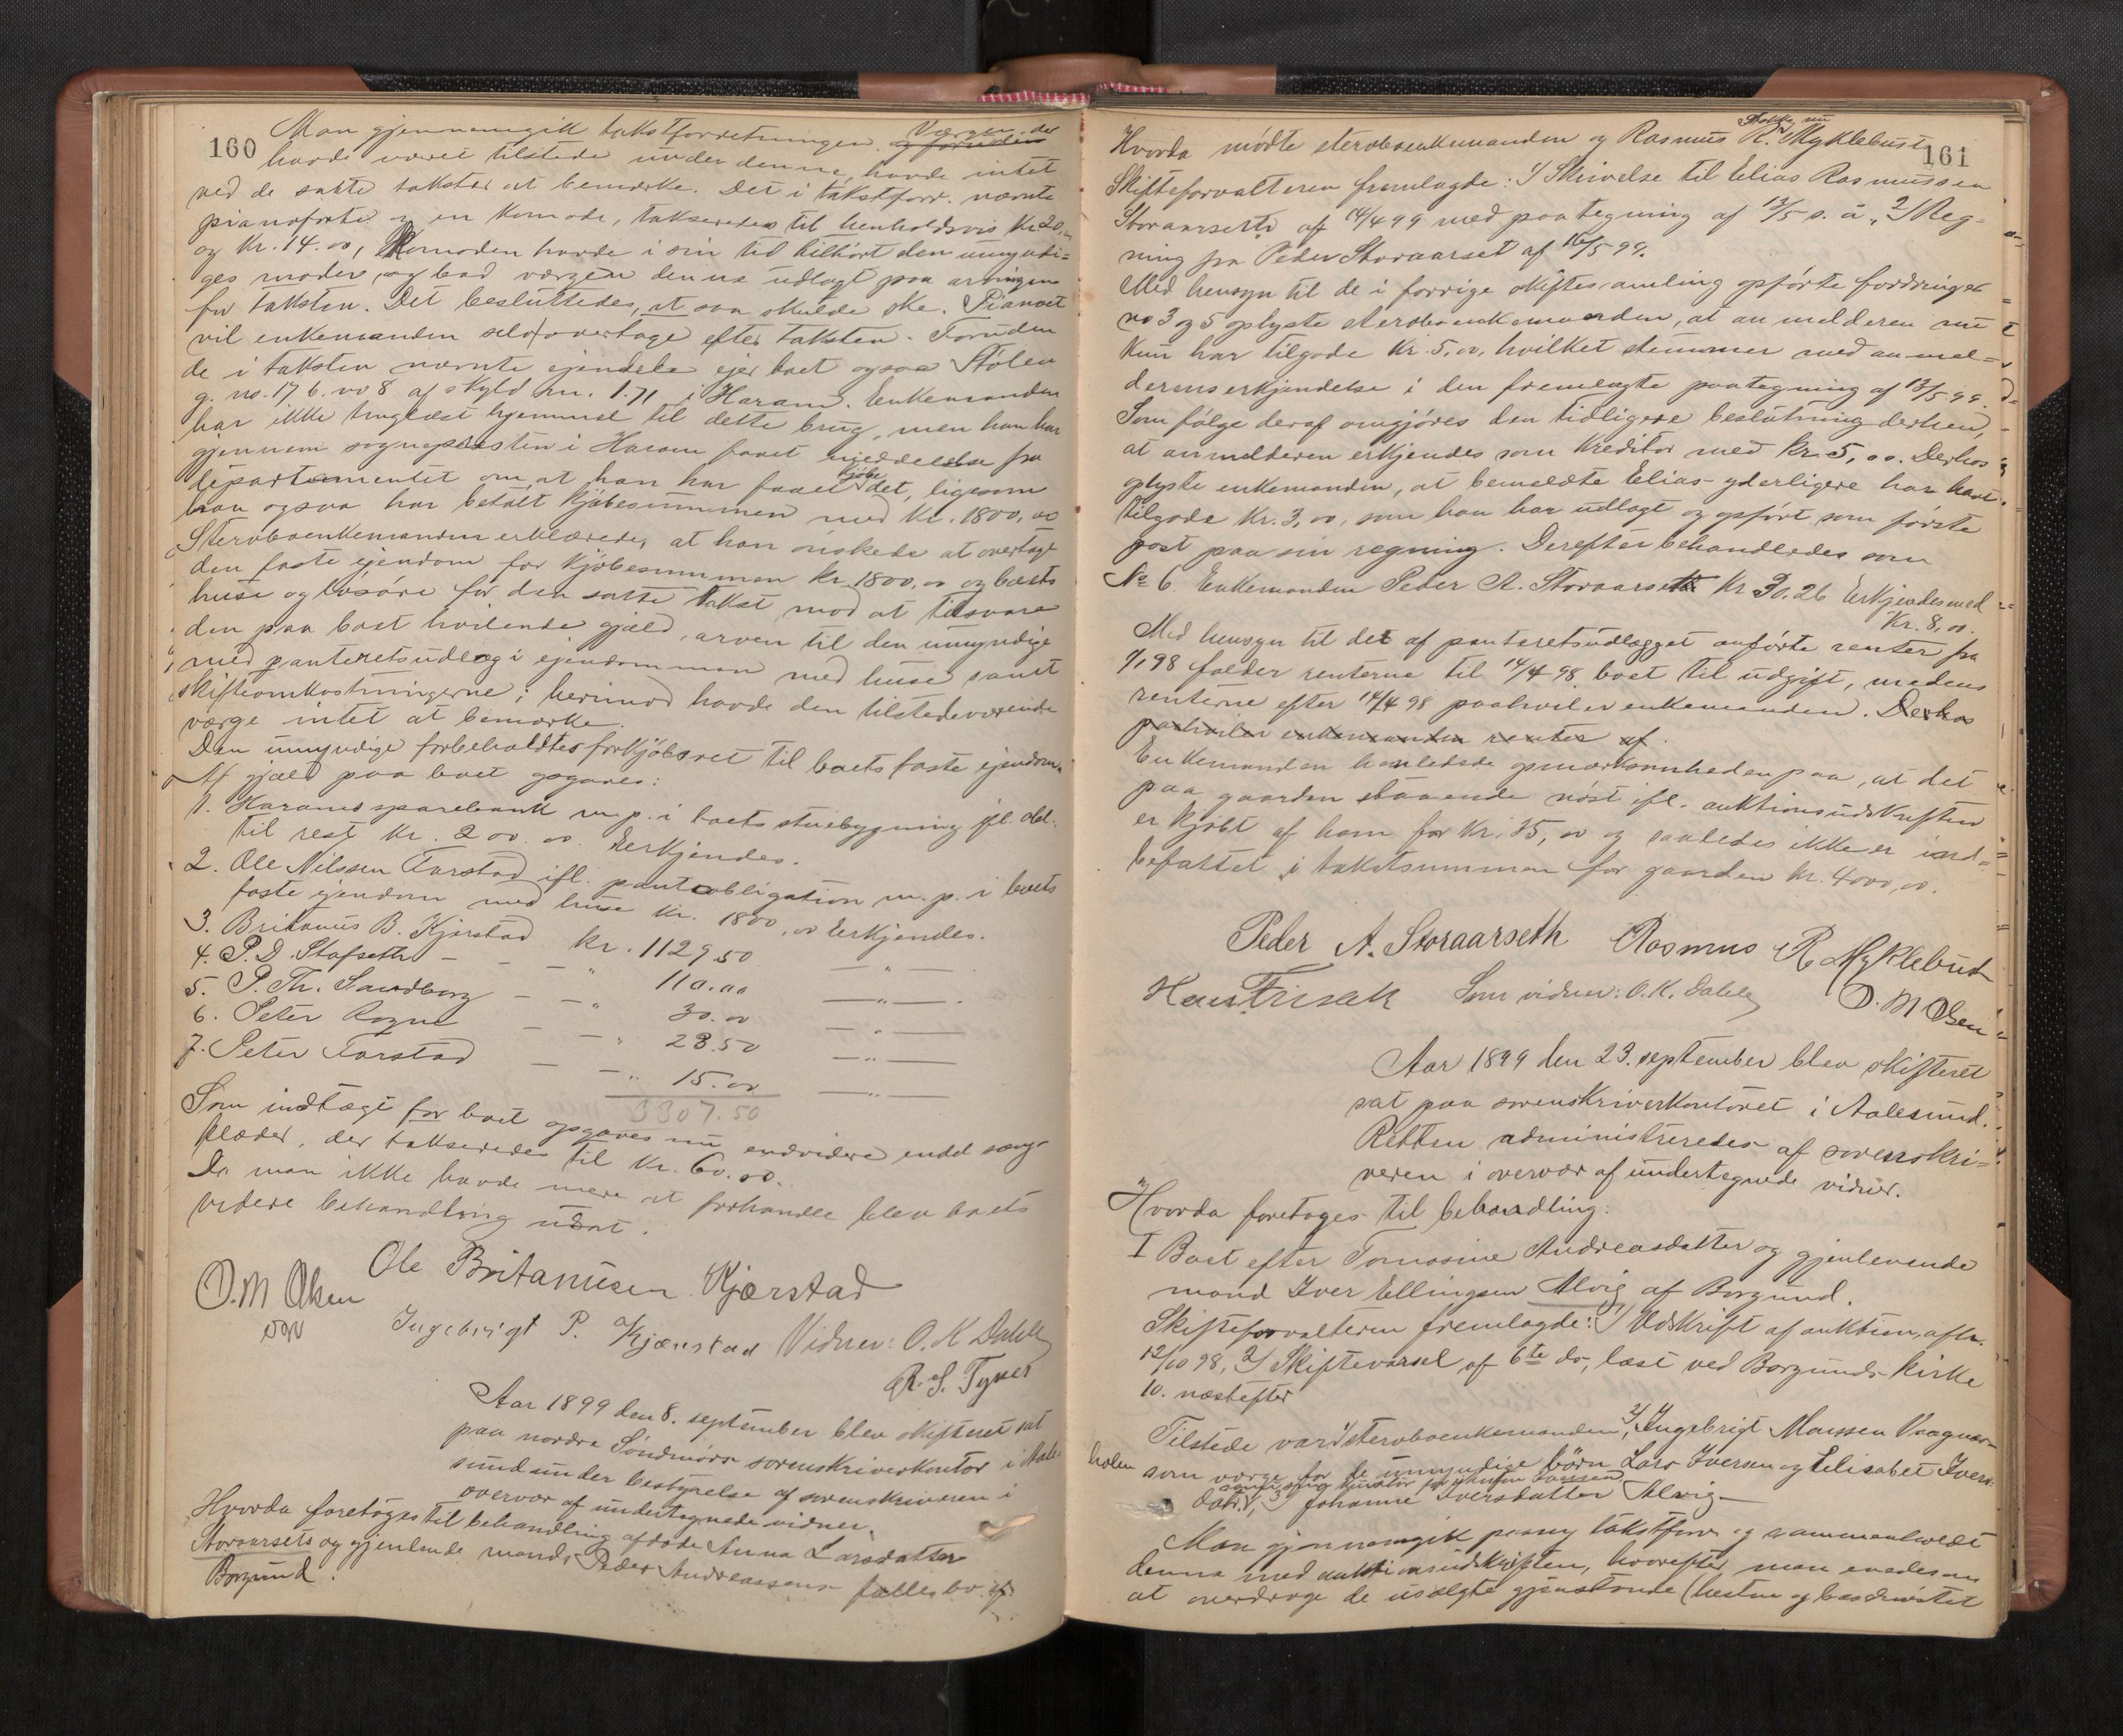 160
Man gjennemgik takstforretningen. Værgen, der
havde været tilstede under denne, havde intet
ved de satte takster at bemærke. Det i takstforr. nævnte
pianoforte og en Komode, takseredes til henholdsvis Kr 20,00
og Kr. 14.00, Komoden havde i sin tid tilhørt den umyndi=
ges moder, og bad værgen denne udlagt paa arvingen
for taksten. Det besluttedes, at saa skulde ske. Pianoet
vil enkemanden selv overtage efter taksten. Foruden
de i taksten nævnte eiendele ejer boet ogsaa Stølen
g. no. 17, b. no 8 af skyld m. 1.71 i Haram. Enkemanden
har ikke tinglæst hjemmel til dette brug, men han har
gjennem sognepresten i Haram faaet meddelelse fra
departementet om, at han har faaet kjøbe det, ligesom
han ogsaa har betalt Kjøbesummen med Kr. 1800,00
Sterboenkemanden erklærede, at han ønskede at overtage
den faste ejendom for Kjøbesummen Kr 1800,00 og boets
huse og løsøre for den satte takst mod at tilsvare
den paa boet hvilende gjæld, arven til den umyndige
med panteretsudlæg i ejendommen med huse samt
skifteomkostningerne; herimod havde den tilstedeværende
værge intet at bemærke.
Den umyndige forbeholdtes forkjøbsret til boets faste ejendom.
Af gjæld paa boet opgaves:
1. Harams sparebank m. p. i boets stuebygning ifl. obl.
til rest Kr. 200.00. Erkjendes.
2. Ole Nilssen Farstad ifl. panteobligation m. p. i boets
faste ejendom med huse Kr. 1800,00 Erkjendes.
3. Britanus B. Kjærstad Kr. 1129 50
4. P. D. Stafseth - - - " 110.00 — " —
5. P. Th. Sandborg - - " 30.00 — " —
6. Peter Rogne - - " 28.50 — " —
7. Peter Farstad - - " 15.00 — " —
3307.50
Som indtægt for boet opgaves nu endvidere endel senge-
klæder, der takseredes til Kr. 60.00.
Da man ikke havde mere at forhandle blev boets
videre behandling udsat.
O. M Olsen Ole Britanusen Kjærstad
Ingebrigt P. Kjærstad Vidner: O. K Dahle
Aar 1899 den 8. september blev skifteret sat
paa nordre Søndmørs sorenskriverkontor i Aale-
sund under bestyrelse af sorenskriveren i
overvær af undertegnede vidner.
Hvorda foretoges til behandling afdøde Anna Larsdatter
Storaarsets og gjenlevende mands Peder Andreassens fællesbo af
Borgund.
161
Hvorda mødte sterboenkemanden og Rasmus R. Myklebust
Skifteforvalteren fremlagde: 1/ Skrivelse til Elias Rasmussen
Storaarseth af 14/4 99 med paategning af 13/5 s. å., 2/ Reg-
ning fra Peder Storaarset af 16/5 99.
Med hensyn til de i forrige skiftesamling opførte fordringer
no 3 og 5 oplyste sterboenkemanden, at anmelderen nu
kun har tilgode Kr. 5,00, hvilket stemmer med anmel-
derens erkjendelse i den fremlagte paategning af 13/5 99.
Som følge deraf omgjøres den tidligere beslutning derhen,
at anmelderen erkjendes som Kreditor med Kr. 5,00. Derhos
oplyste enkemanden, at bemeldte Elias yderligere har havt
tilgode Kr. 3,00, som han har udlagt og opført som første
post paa sin regning. Derefter behandledes som
No 6. Enkemanden Peder A. Storaarseth Kr 30.26 Erkjendes med
Kr. 8,00.
Med hensyn til det af panteretsudlægget anførte renter fra
1/1 98 falder renterne til 14/4 98 boet til udgift, medens
renterne efter 14/4 98 paahviler enkemanden. Derhos
paahviler enkemanden renter af
Enkemanden henledede opmærksomheden paa, at det
paa gaarden staaende nøst ifl. auktionsudskriften
er Kjøbt af ham for Kr. 35,00 og saaledes ikke er ind-
befattet i takstsummen for gaarden Kr. 4000,00.
Peder A. Storaarseth Rasmus R Myklebust
Hans Frisak Som vidner: O. K. Dahle O. M Olsen
Aar 1899 den 23. september blev skifteret
sat paa sorenskriverkontoret i Aalesund.
Retten administreredes af sorenskri-
veren i overvær af undertegnede vidner.
Hvorda foretoges til behandling:
I Boet efter Tomasine Andreasdatter og gjenlevende
mand Iver Ellingsen Alvig af Borgund.
Skifteforvalteren fremlagde: 1/ Udskrift af auktion, afh.
12/10 98, 2/ Skiftevarsel af 6te ds, læst ved Borgunds Kirke
10. næstefter
Tilstede var 1/ sterboenkemanden, 2/ Ingebrigt Monssen Vaagnes-
holen som værge for de umyndige børn Lars Iversen og Elisabet Ivers-
datr., 3/ Johanne Iversdatter Alvig.
Man gjennemgik paany takstforr. og sammenholdt
denne med auktionsudskriften, hvorefter man enedes om
at overdrage de usolgte gjenstande (hesten og